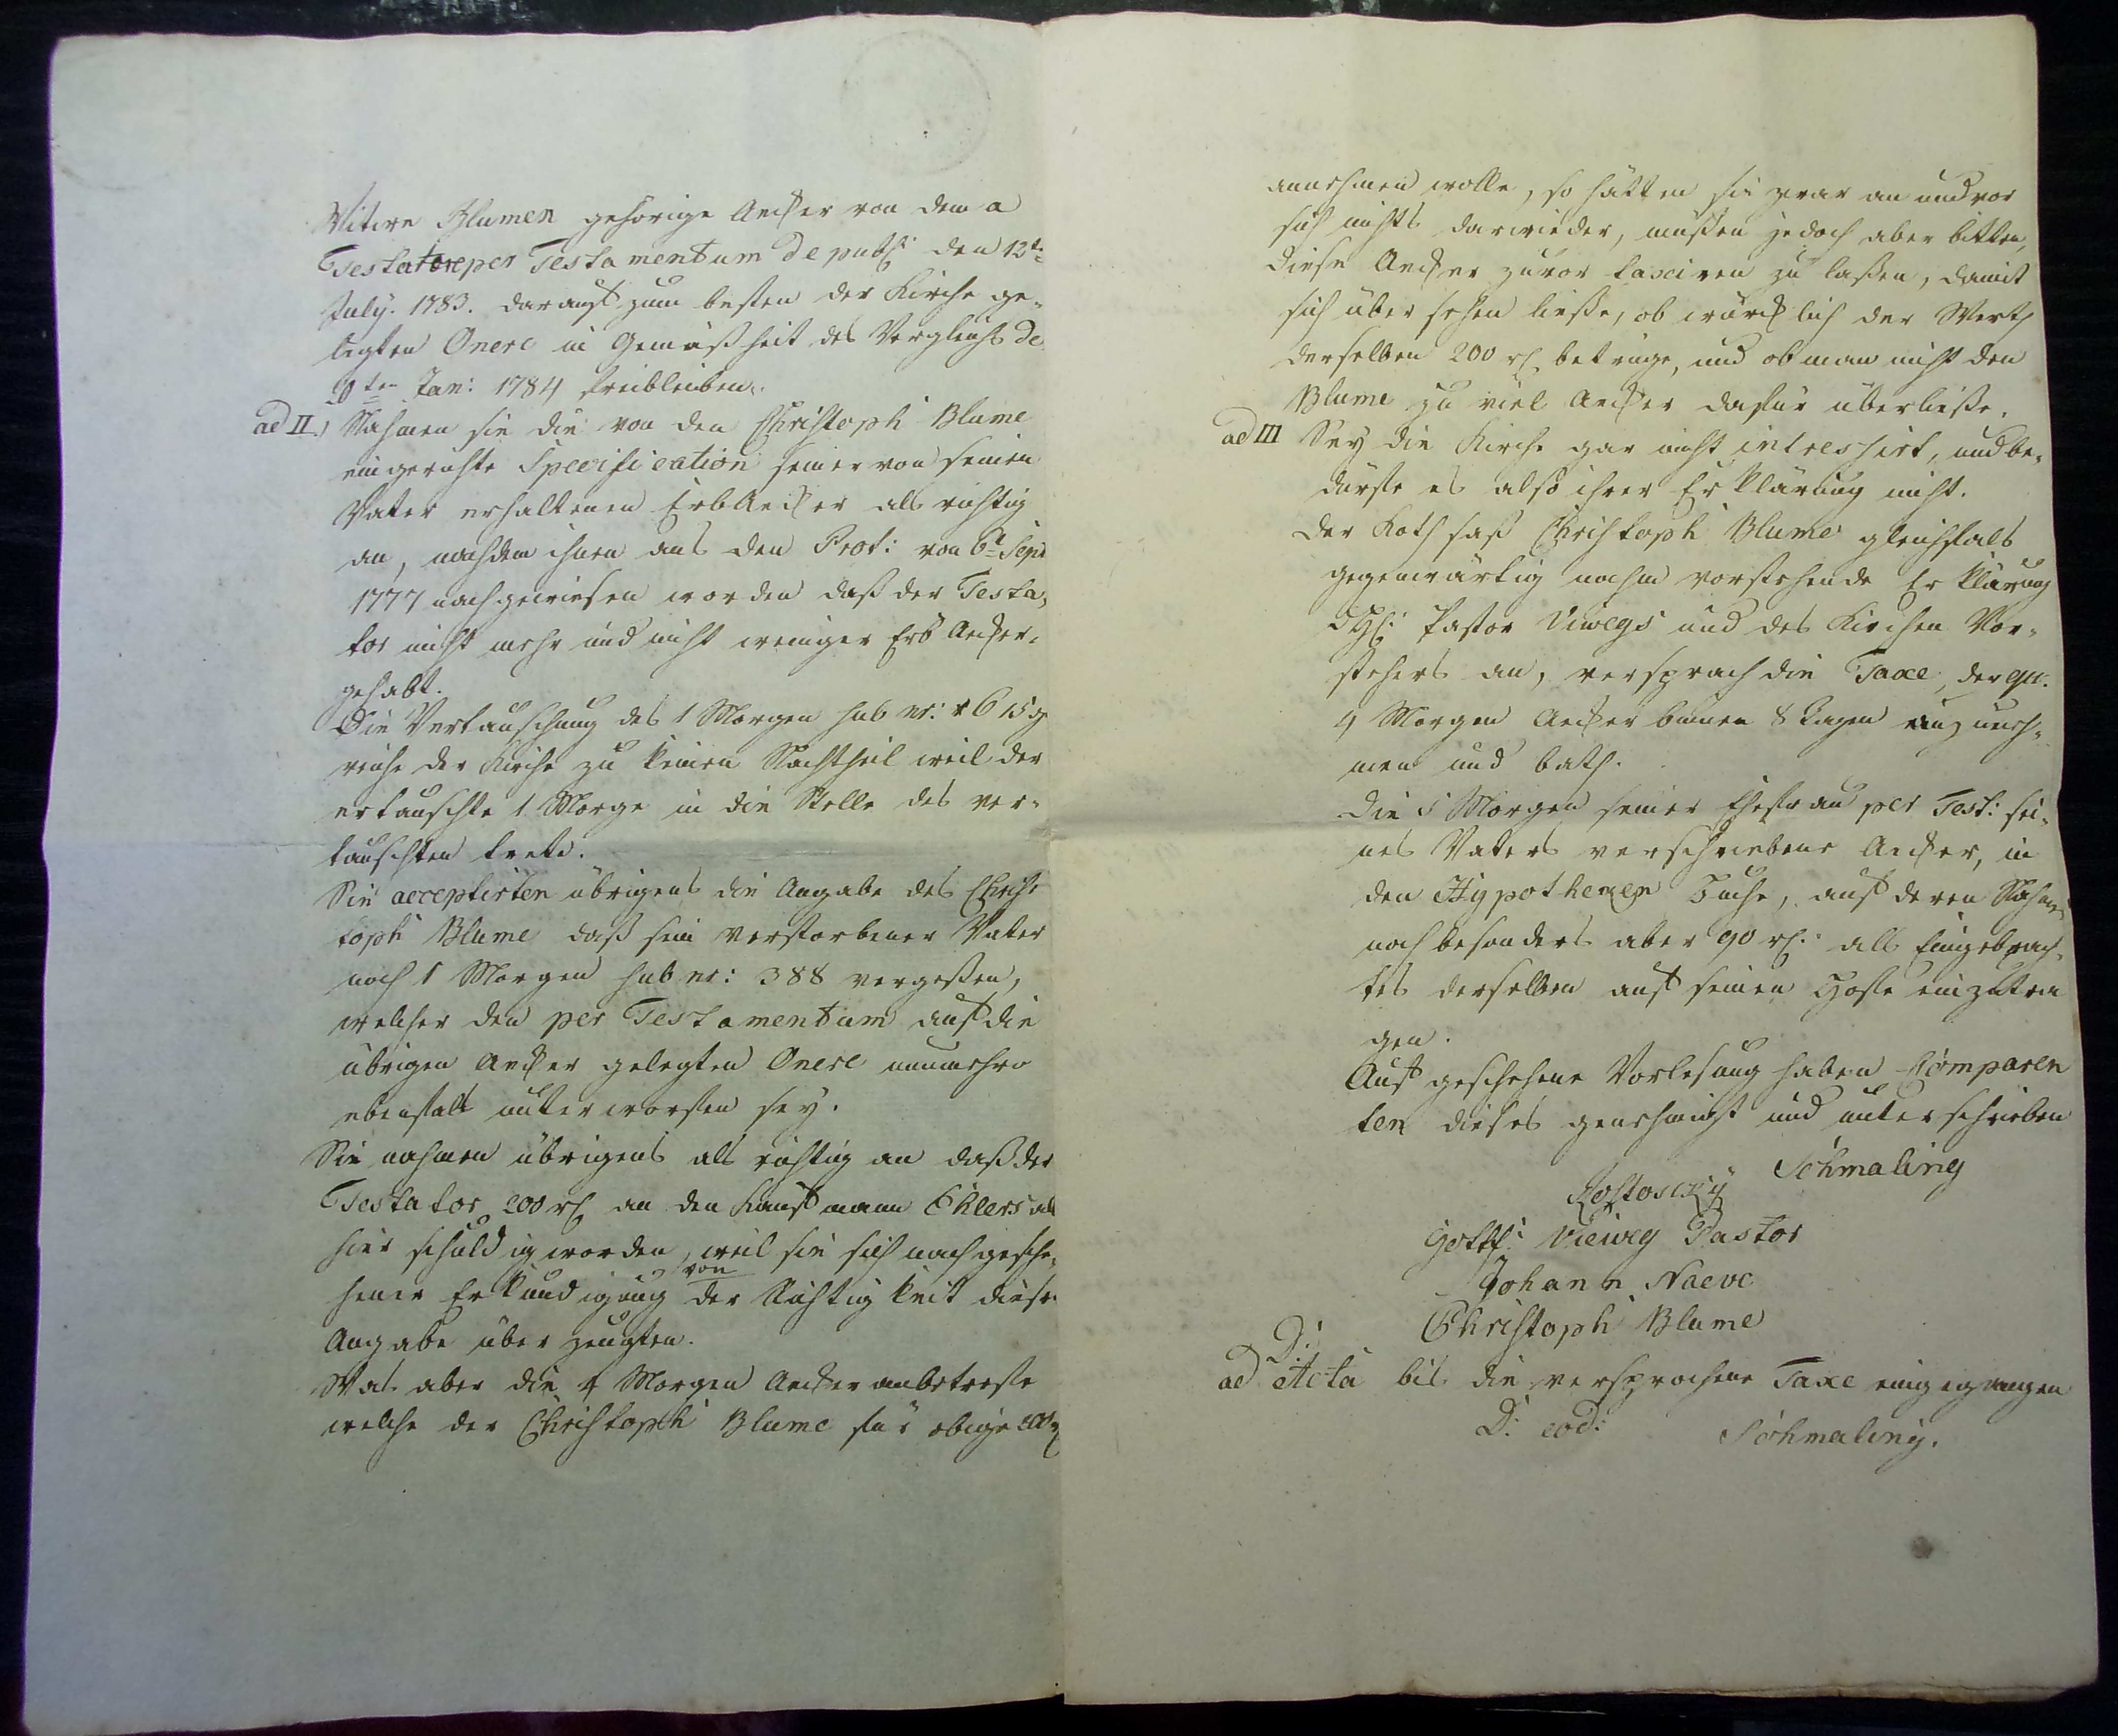 Witwe Blumen gehörige Aecker von dem a
Testatore per Testamentum de publ: den 12t
July. 1783. darauf zum besten der Kirche ge-
legten Onere in Gemäßheit des Vergleichs de
20ten Jan: 1784 frei bleiben.
ad II.) Nahmen sie die von den Christoph Blume
eingereichte Specification seiner von seinen
Vater erhaltenen Erb Aecker als richtig
an, nachdem ihnen aus den Prot: von 6t Sept
1777 nachgewiesen worden daß der Testa-
tor nicht mehr und nicht weniger Erb Aecker
gehabt.
Die Vertauschung des 1 Morgen sub nr:
reiche der Kirche zu keinen Nachtheil weil der
ertauschte 1 Morge in die Stelle des ver-
tauschten trete.
Sie acceptirten übrigens die Angabe des Chris
toph Blume daß sein verstorbener Vater
noch 1 Morgen sub nr: 388 vergeßen,
welcher den per Testamentum auf die
übrigen Aecker gelegten Onere nunmehro
ebenfals unterworfen sey.
Sie nahmen übrigens als richtig an daß der
Testator 200 rl an den Kaufmann Ehlers al
hier schuldig worden, weil sie sich nach gesche-
hener Erkundigung von der Richtigkeit dieser
Angabe überzeugten.
Was aber die 4 Morgen Aecker anbetreffe
welche der Christoph Blume für obige 200 rl
annehmen wolle, so hätten sie zwar an und vor
sich nichts darwieder, müßten jedoch aber bitten,
diese Aecker zuvor taxiren zu laßen, damit
sich übersehen ließe, ob würcklich der Werth
derselben 200 rl betrüge, und ob man nicht den
Blume zu viel Aecker dafür überließe.
ad III Sey die Kirche gar nicht intressirt, und be-
dürfe es also ihrer Erklärung nicht.
Der Kothsaß Christoph Blume gleichfals
gegenwärtig nahm vorstehende Erklärung
d H: Pastor Viwegs und des Kirchen Vor-
stehers an, versprach die Taxe, der qu.
4 Morgen Aecker binnen 8 Tagen
men und bath.
Die 5 Morgen seiner Ehefrau per Test: sei-
nes Vaters verschriebene Aecker, in
den Hypotheken Buche, auf deren Nahmen
noch besonders aber 90 rl: als Eingebrach-
tes derselben auf seinen Hofe einzutra
gen.
Auf geschehene Vorlesung haben Comparen
ten dieses genehmigt und unterschrieben
Schmaling
Gottfr: Vieweg Pastor
Johann Naeve
Christoph Blume
D:
ad Acta bis die versprochene Taxe eingegangen
D: eod: Schmaling.